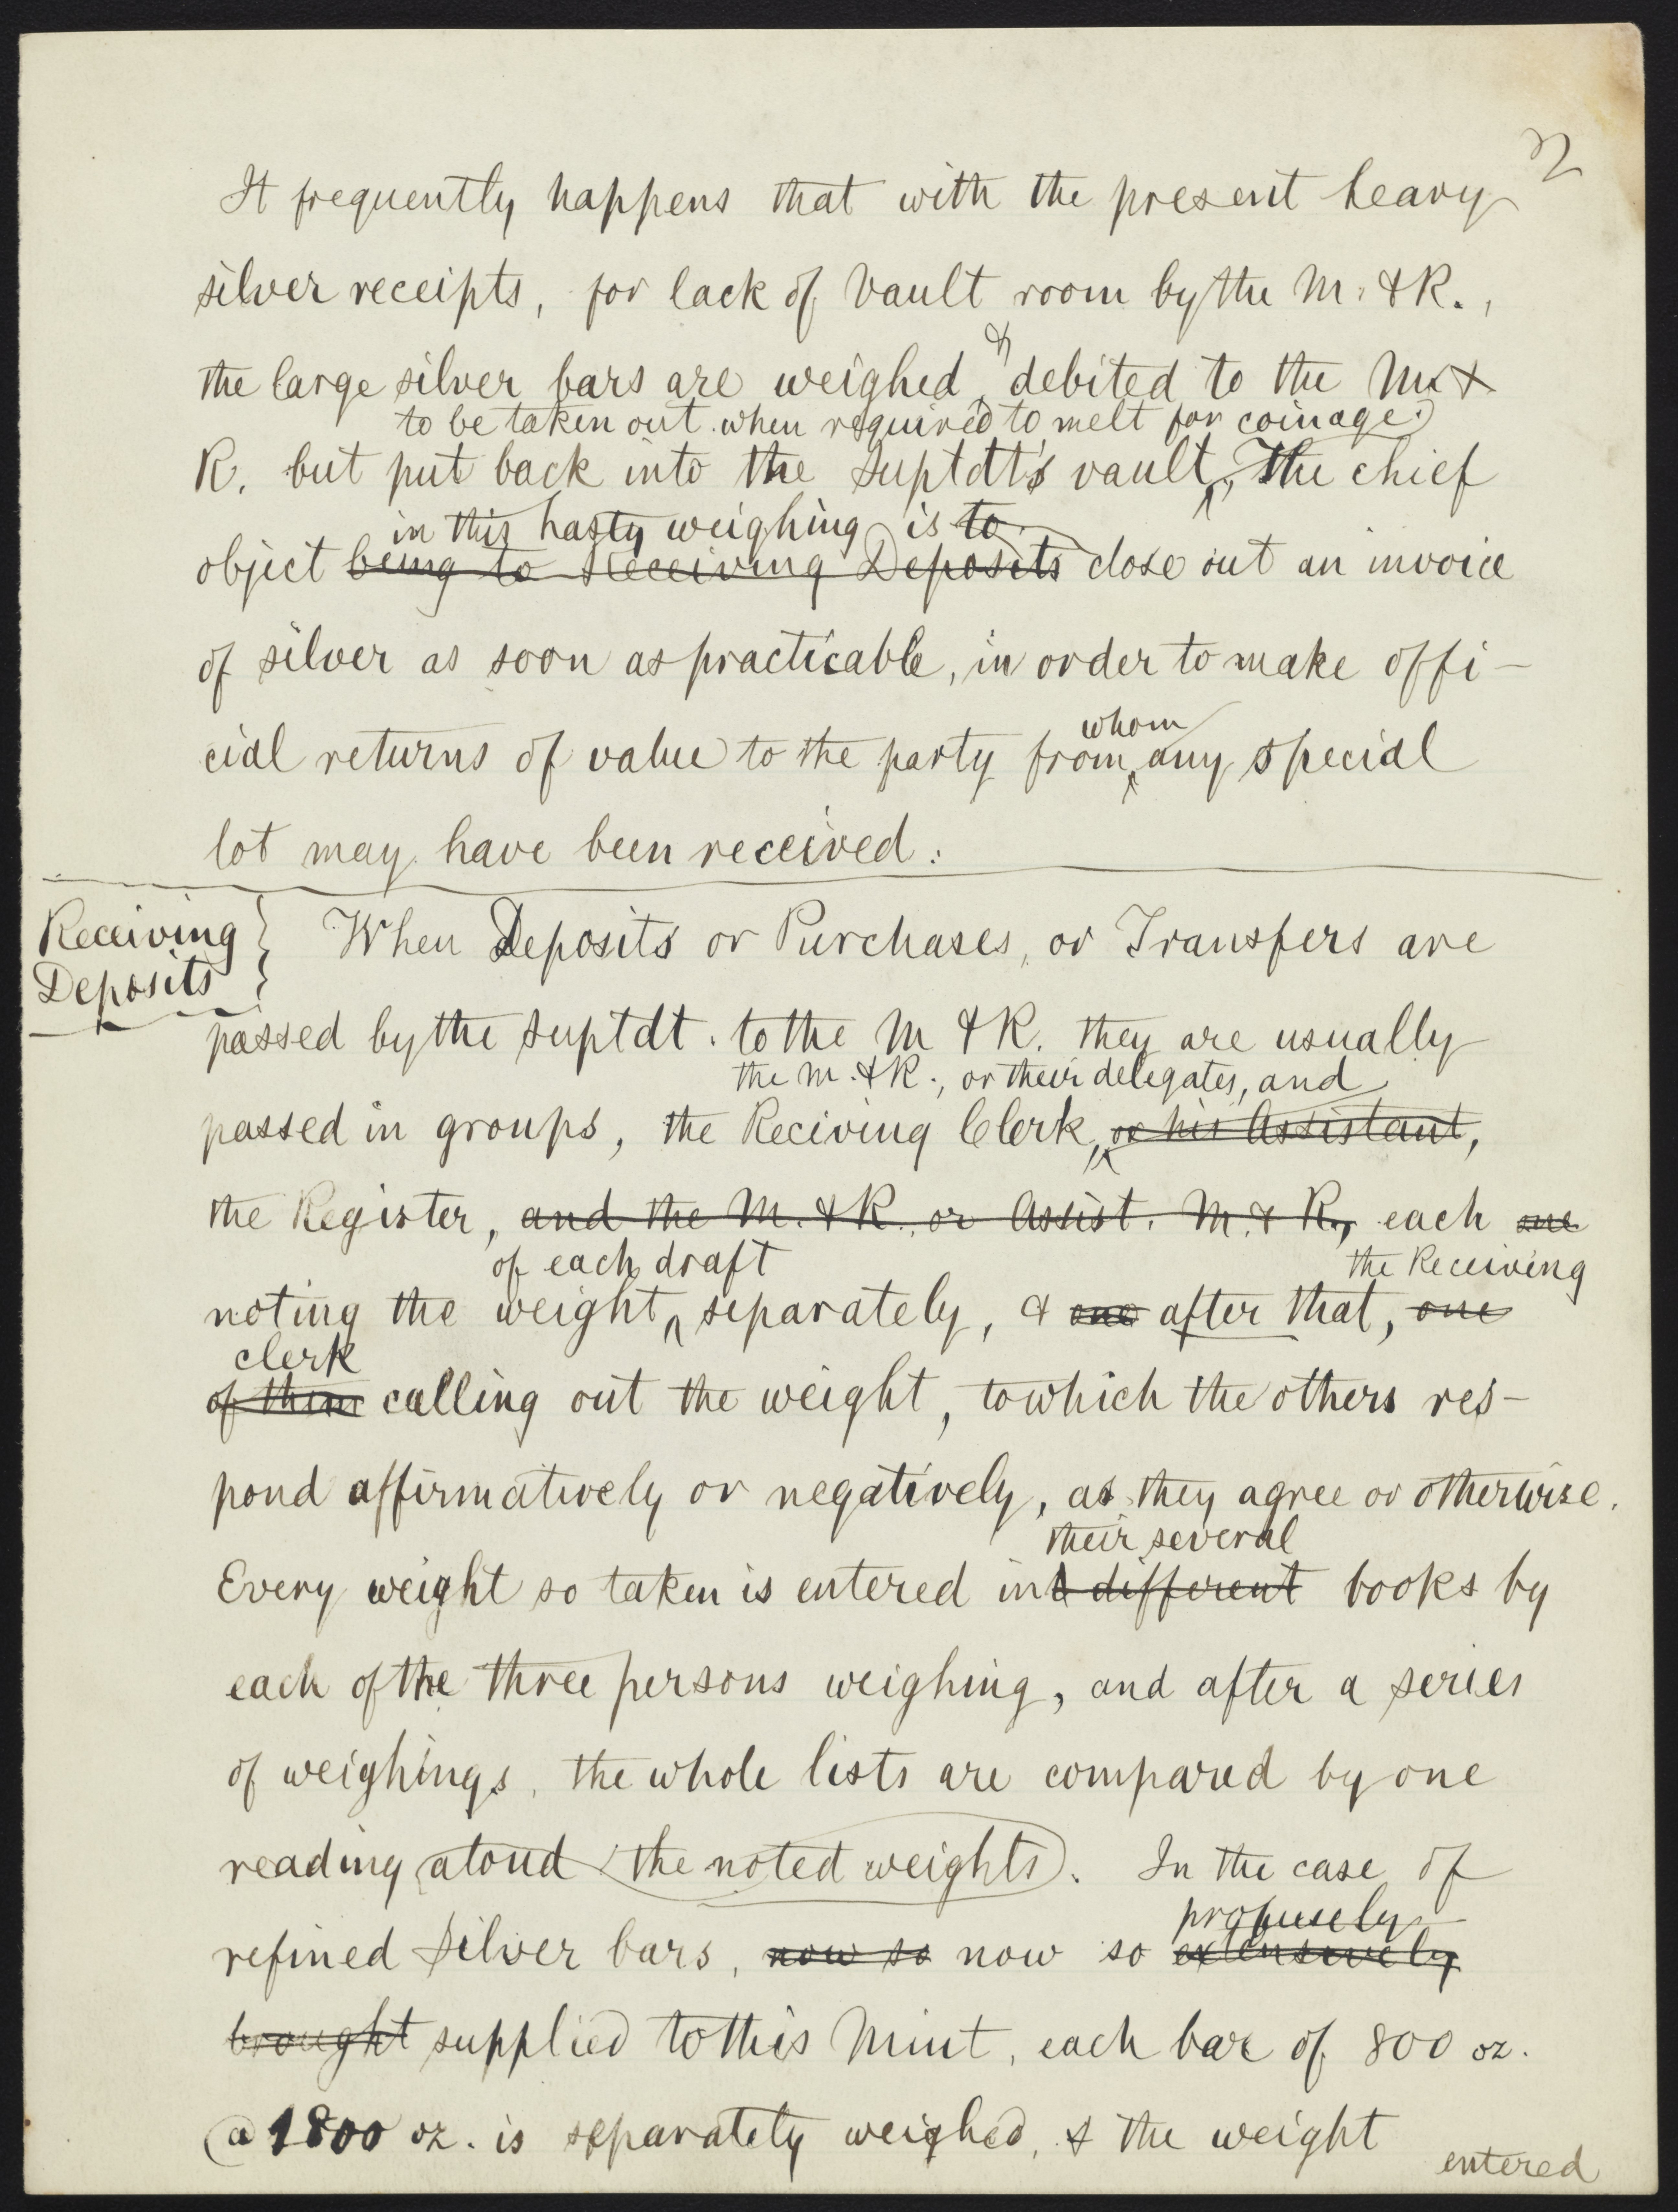 32
It frequently happens that with the present heavy
silver receipts, for lack of vault room by the M. & R.,
&
the large silver bars are weighed, debited to the M. &
to be taken out when required to melt for coinage.
R. but put back into the Suptdt's vault, The chief
in this hasty weighing is to
object being to Receiving Deposits close out an invoice
of silver as soon as practicable, in order to make offi-
cial returns of value to the party from any special
whom
lot may have been received.
Receiving
Deposits
When Deposits or Purchases, or Transfers are
passed by the Suptdt. to the M & R. they are usually
the M. & R., or their delegates, and
passed in groups, the Reciving Clerk, or his Assistant,
the Register, and the M. & R. or Assist. M. & R., each one
of each draft the Receiving
noting the weight, separately, & one after that, one
clerk
of them calling out the weight, to which the others res-
pond affirmatively or negatively, as they agree or otherwise.
their several
Every weight so taken is entered in different books by
each of the three persons weighing, and after a series
of weighings, the whole lists are compared by one
reading aloud (the noted weights). In the case of
profusely
refined silver bars, now so now so extensively
brought supplied to this Mint, each bar of 800 oz.
@ 1800 oz. is separately weighed, & the weight
entered